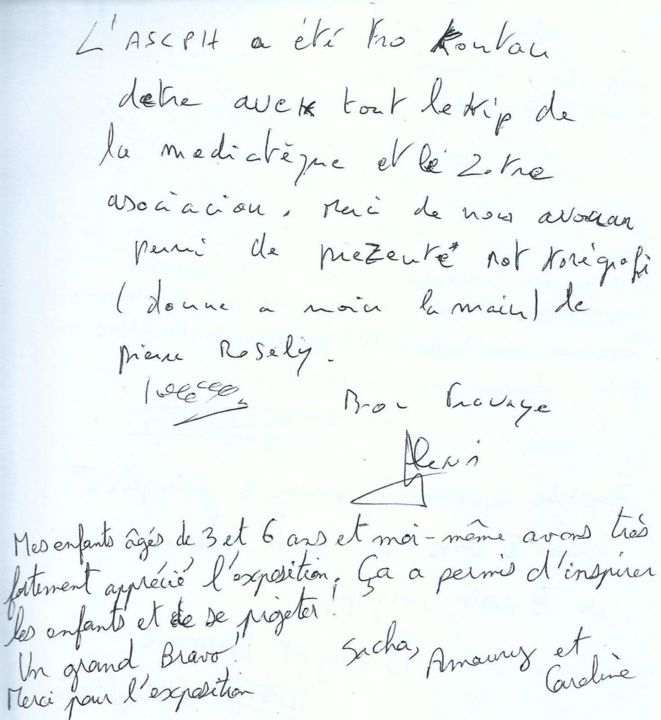 L'ASCPH a été tro kontan
detre avek tout le kip de
la mediatèque et lé Zotre
asociacion. Merci de nous avoir
permi de prezenté not korégrafi
(donne a moin la main) de
pierre Rosely.
Bon Travaye
Alexis
Mes enfants âgés de 3 et 6 ans et moi-même avons très
fortement apprécié l'exposition. Ça a permis d'inspirer
les enfants et de se projeter!
Un grand Bravo!
Merci pour l'exposition
Sacha, Amaury et
Caroline